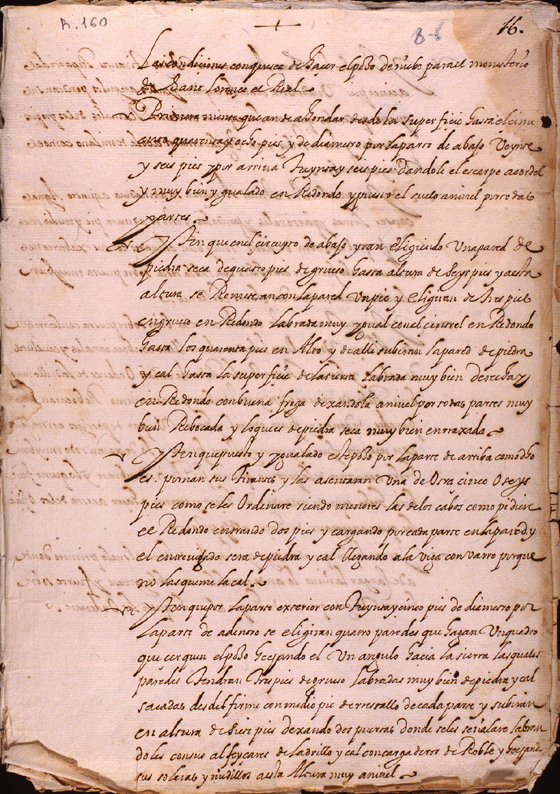 R. 160
8-6
16.
Las condiciones con que se a de hacer el pozo de nieve para el monesterio
de Sant Lorenço el Real
Primeramente que an de ahondar desde la superficie hasta el
quarenta y ocho pies y de diametro por la parte de abajo Veynte
y seys pies y por arriva treynta y seys pies dandole el escarpo a cordel
y muy bien ygualado en Redondo y puesto el suelo a nivel por todas
partes
Yten que en el circuyto de abajo yran eligiendo Una pared de
piedra seca de quatro pies de grueso hasta altura de seys pies y a esta
altura se Remetera con la pared Un pie y eligiran de tres pies
en grueso en Redondo labrada muy ygual con el cintrel en Redondo
hasta los quarenta pies en Alto y de alli subiran la pared de piedra
y cal hasta la superficie de la tierra labrada muy bien derecha y
en Redondo con buena dexandola a nivel por todas partes muy
bien Rebocada y lo que es de piedra seca muy bien enraxada
Yten que puesto y ygualado el pozo por la parte de arriba como dho
es pornan sus tirantes y las asentaran Una de Otra cinco O seys
pies como se les Ordenare siendo menores las de los cabos como pidiere
el Redondo entrando dos pies y cargando por cada parte en la pared y
el enrexado sera de piedra y cal llegando a la viga con varro porque
no las queme la cal
Yten que por la parte exterior con treynta y cinco pies de diametro por
la parte de adentro se eligiran quatro paredes que hagan Un quadro
que cerquen el pozo hechando el Un angulo hacia la sierra las quales
paredes tendran tres pies de grueso labradas muy bien de piedra y cal
sacadas desde el firme con medio pie de rrestallo de cada parte y subiran
en altura de diez pies dexando dos puertas donde se les señalare labran
doles con sus alfeyçares de ladrillo y cal con cargaderos de Roble y hechando
sus soleras y nudillos a esta Altura muy a nivel